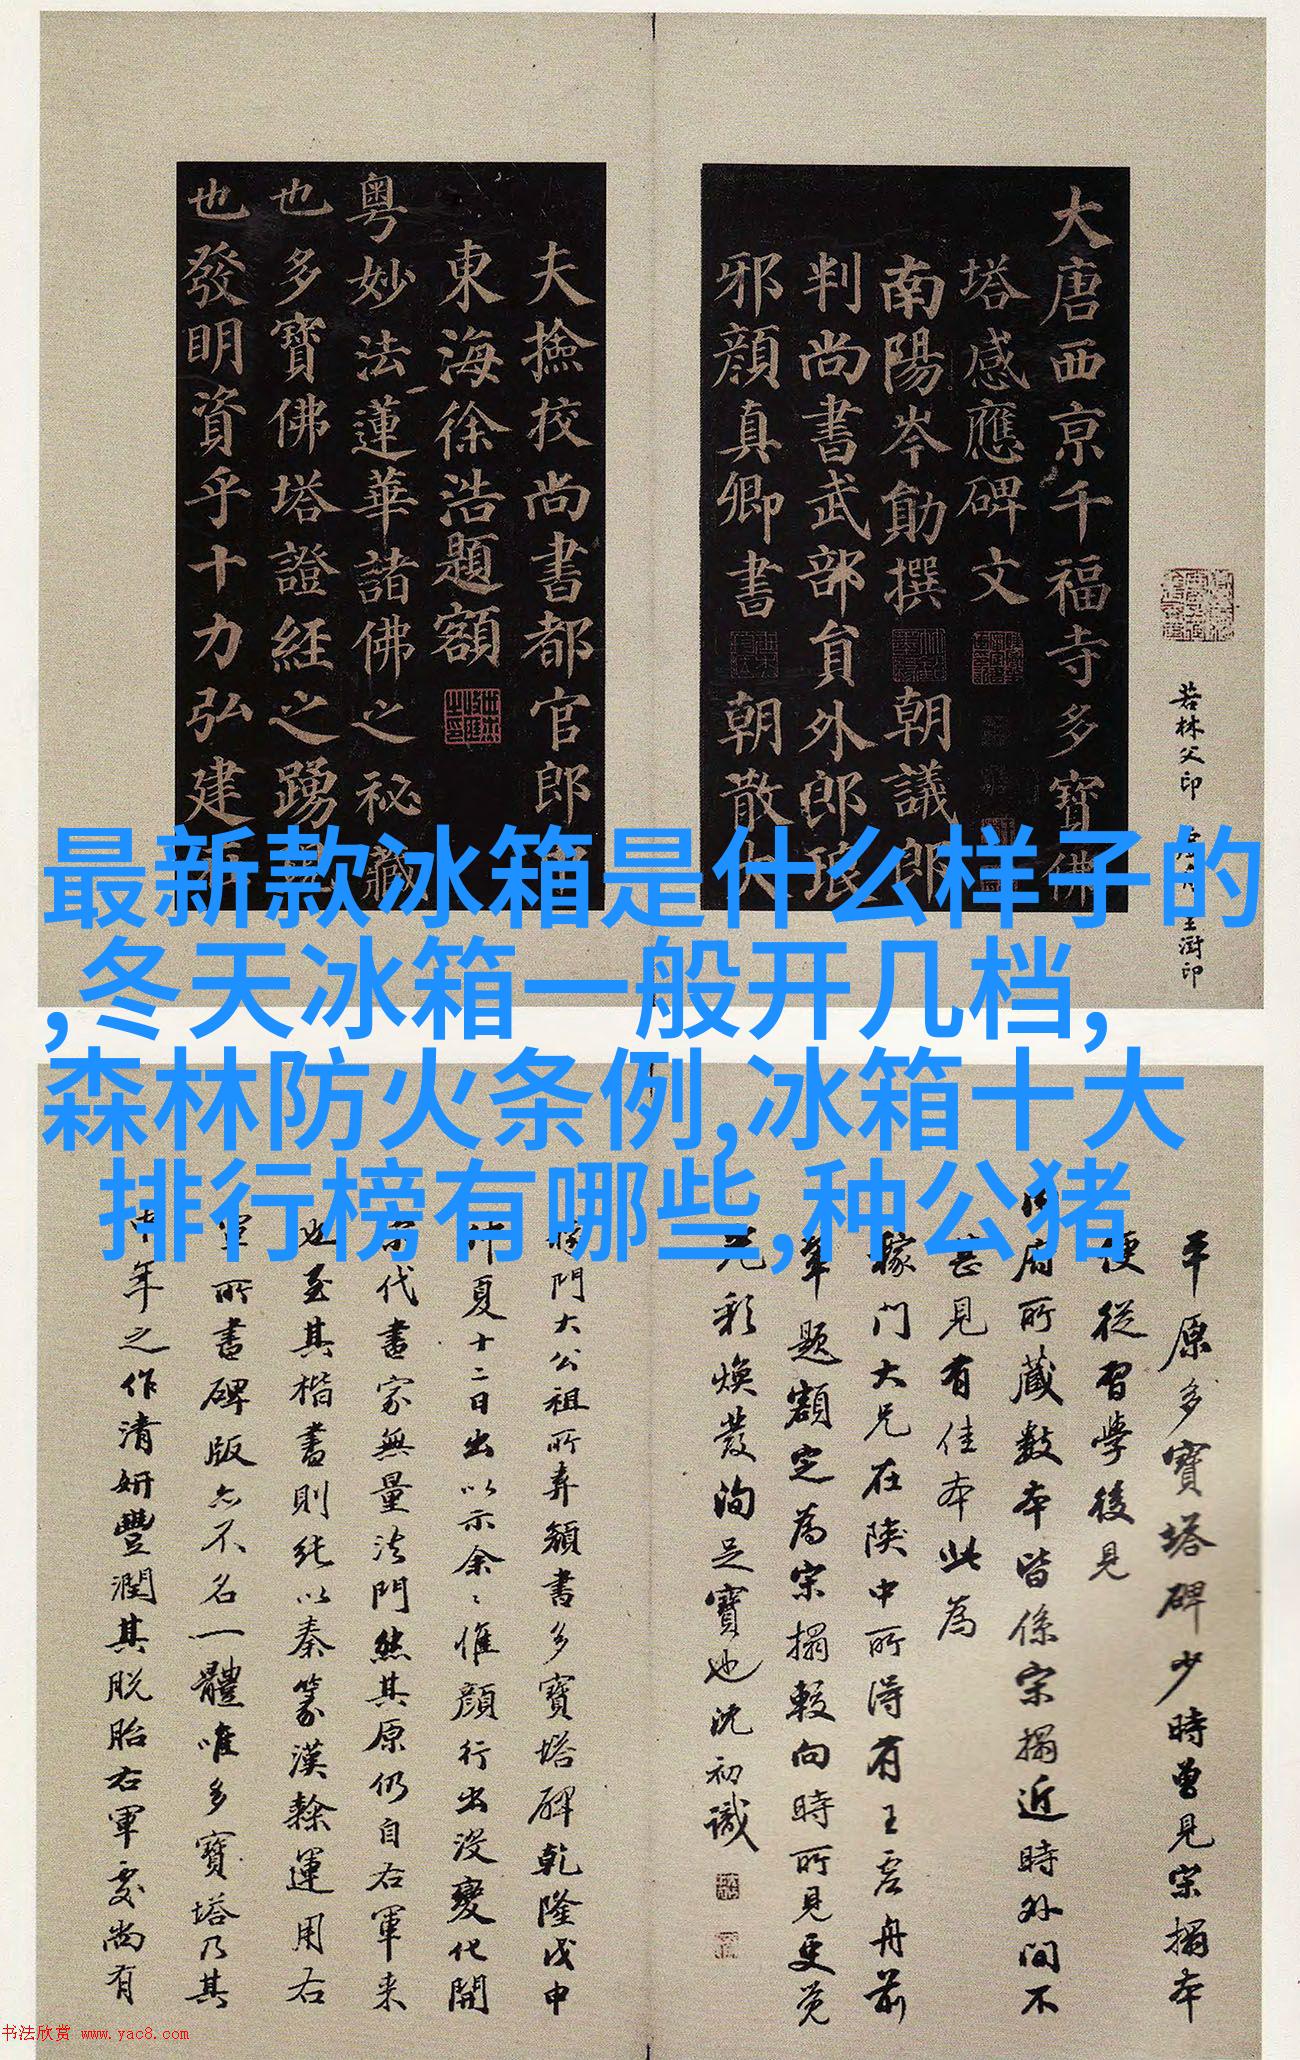 大唐西京千福寺多寶佛
塔感應碑文
南陽岑勛撰 朝議郎
判尚書武部員外郎琅
邪顏真卿書 朝散大
夫撿挍尚書都官郎
東海徐浩題額
粵妙法蓮華諸佛之秘藏
也多寶佛塔證經之踴
也發明資乎十力弘建
若林父印
王澍印
最新款冰箱是什么样子的
,冬天冰箱一般开几档,
森林防火条例,冰箱十大
排行榜有哪些,种公猪
平原多寶塔碑少時曾見宋搨本
便從習學後見
内府所藏數本皆係宋搨近時外間不
甚見有佳本此為
稼門大兄在陝中所得有王虛舟前
輩題額定為宋搨較向時所見更覺
光彩煥發洵足寶也沈初識
稼門大公祖所弆顏書多寶塔碑乾隆戊申
仲夏十二日出以示余〻惟顏行出沒變化開
宋代書家無量法門然其原仍自右軍来
也至其楷書則純以秦篆漢隸運用右
軍所書碑版亦不名一體唯多寶塔乃其
中年之作清妍豐潤其脱胎右軍處尚有
书法欣赏 www.yac8.com